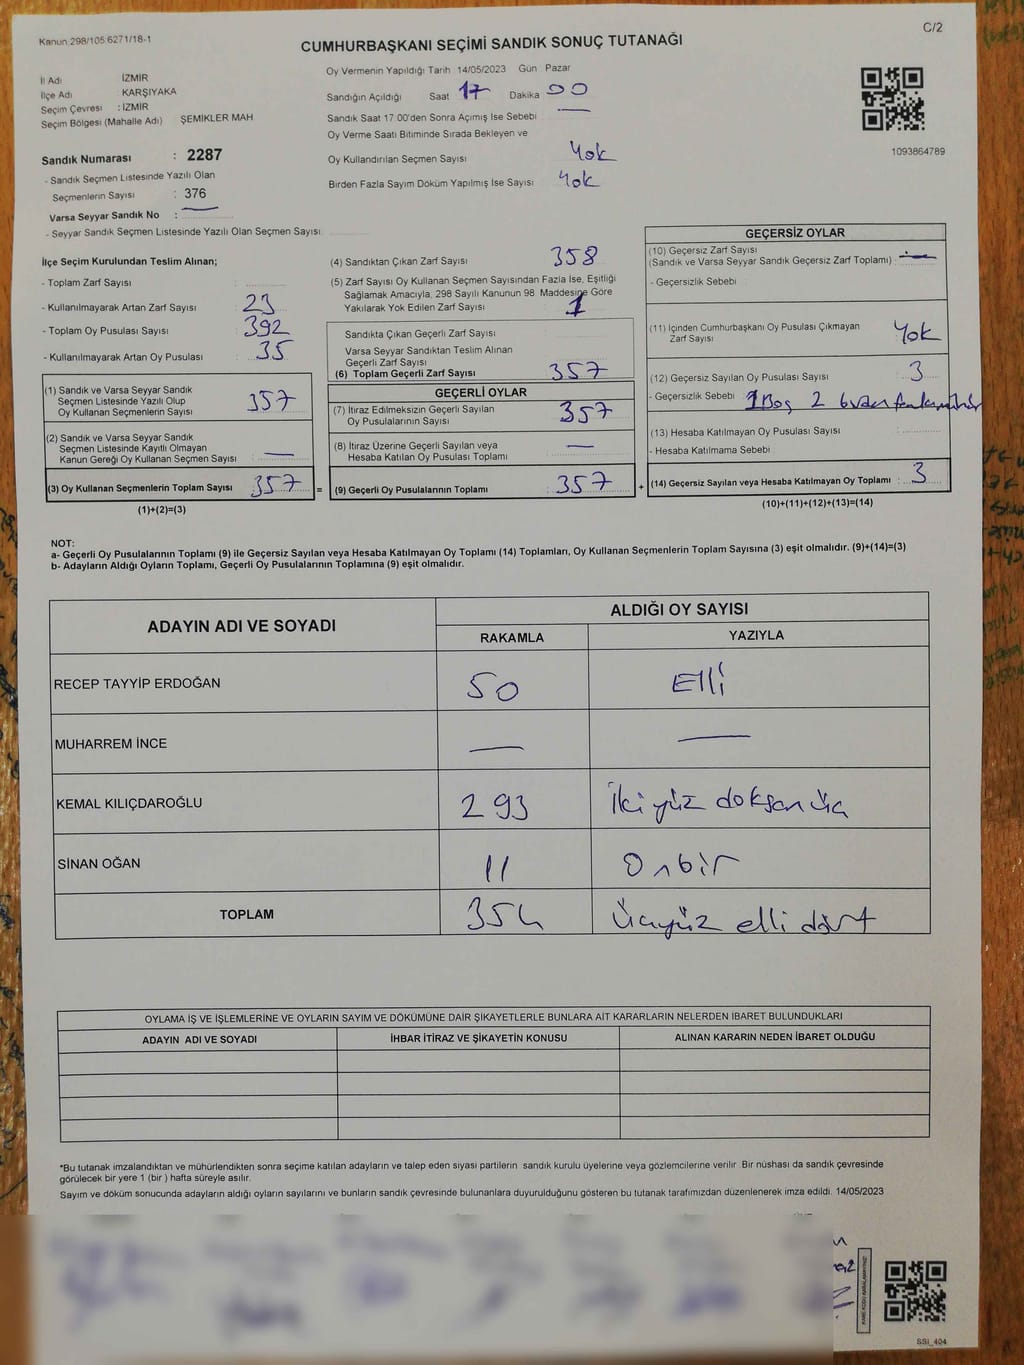 Kanun 298/105.6271/18-1
C/2
CUMHURBAŞKANI SEÇİMİ SANDIK SONUÇ TUTANAĞI
İl Adı İZMİR
İlçe Adı KARŞIYAKA
Seçim Çevresi : İZMİR
Seçim Bölgesi (Mahalle Adı) ŞEMİKLER MAH.
Sandık Numarası : 2287
- Sandık Seçmen Listesinde Yazılı Olan
Seçmenlerin Sayısı : 376
Varsa Seyyar Sandık No : —
- Seyyar Sandık Seçmen Listesinde Yazılı Olan Seçmen Sayısı
Oy Vermenin Yapıldığı Tarih 14/05/2023 Gün Pazar
Sandığın Açıldığı Saat 17 Dakika 00
Sandık Saat 17.00'den Sonra Açımış İse Sebebi —
Oy Verme Saati Bitiminde Sırada Bekleyen ve
Oy Kullandırılan Seçmen Sayısı Yok
Birden Fazla Sayım Döküm Yapılmış İse Sayısı Yok
1093864789
İlçe Seçim Kurulundan Teslim Alınan;
- Toplam Zarf Sayısı :
- Kullanılmayarak Artan Zarf Sayısı : 23
- Toplam Oy Pusulası Sayısı : 392
- Kullanılmayarak Artan Oy Pusulası : 35
(1) Sandık ve Varsa Seyyar Sandık
Seçmen Listesinde Yazılı Olup
Oy Kullanan Seçmenlerin Sayısı : 357
(2) Sandık ve Varsa Seyyar Sandık
Seçmen Listesinde Kayıtlı Olmayan
Kanun Gereği Oy Kullanan Seçmen Sayısı : —
(3) Oy Kullanan Seçmenlerin Toplam Sayısı 357 =
(1)+(2)=(3)
(4) Sandıktan Çıkan Zarf Sayısı 358
(5) Zarf Sayısı Oy Kullanan Seçmen Sayısından Fazla İse, Eşitliği
Sağlamak Amacıyla; 298 Sayılı Kanunun 98 Maddesine Göre
Yakılarak Yok Edilen Zarf Sayısı 1
Sandıkta Çıkan Geçerli Zarf Sayısı
Varsa Seyyar Sandıktan Teslim Alınan
Geçerli Zarf Sayısı
(6) Toplam Geçerli Zarf Sayısı 357
GEÇERLİ OYLAR
(7) İtiraz Edilmeksizin Geçerli Sayılan
Oy Pusulalarının Sayısı 357
(8) İtiraz Üzerine Geçerli Sayılan veya
Hesaba Katılan Oy Pusulası Toplamı —
(9) Geçerli Oy Pusulalarının Toplamı 357 +
GEÇERSİZ OYLAR
(10) Geçersiz Zarf Sayısı
(Sandık ve Varsa Seyyar Sandık Geçersiz Zarf Toplamı) : —
- Geçersizlik Sebebi
(11) İçinden Cumhurbaşkanı Oy Pusulası Çıkmayan
Zarf Sayısı Yok
(12) Geçersiz Sayılan Oy Pusulası Sayısı : 3
- Geçersizlik Sebebi 1 Boş 2 birden fazla mühür
(13) Hesaba Katılmayan Oy Pusulası Sayısı :
- Hesaba Katılmama Sebebi
(14) Geçersiz Sayılan veya Hesaba Katılmayan Oy Toplamı : 3
(10)+(11)+(12)+(13)=(14)
NOT:
a- Geçerli Oy Pusulalarının Toplamı (9) ile Geçersiz Sayılan veya Hesaba Katılmayan Oy Toplamı (14) Toplamları, Oy Kullanan Seçmenlerin Toplam Sayısına (3) eşit olmalıdır. (9)+(14)=(3)
b- Adayların Aldığı Oyların Toplamı, Geçerli Oy Pusulalarının Toplamına (9) eşit olmalıdır.
ADAYIN ADI VE SOYADI
ALDIĞI OY SAYISI
RAKAMLA YAZIYLA
RECEP TAYYİP ERDOĞAN 50 Elli
MUHARREM İNCE — —
KEMAL KILIÇDAROĞLU 293 İkiyüz doksan üç
SİNAN OĞAN 11 Onbir
TOPLAM 354 Üçyüz elli dört
OYLAMA İŞ VE İŞLEMLERİNE VE OYLARIN SAYIM VE DÖKÜMÜNE DAİR ŞİKAYETLERLE BUNLARA AİT KARARLARIN NELERDEN İBARET BULUNDUKLARI
ADAYIN ADI VE SOYADI İHBAR İTİRAZ VE ŞİKAYETİN KONUSU ALINAN KARARIN NEDEN İBARET OLDUĞU
*Bu tutanak imzalandıktan ve mühürlendikten sonra seçime katılan adayların ve talep eden siyasi partilerin sandık kurulu üyelerine veya gözlemcilerine verilir. Bir nüshası da sandık çevresinde
görülecek bir yere 1 (bir ) hafta süreyle asılır.
Sayım ve döküm sonucunda adayların aldığı oyların sayılarını ve bunların sandık çevresinde bulunanlara duyurulduğunu gösteren bu tutanak tarafımızdan düzenlenerek imza edildi. 14/05/2023
KARE KODU KARALAMAYINIZ!
SSI_404